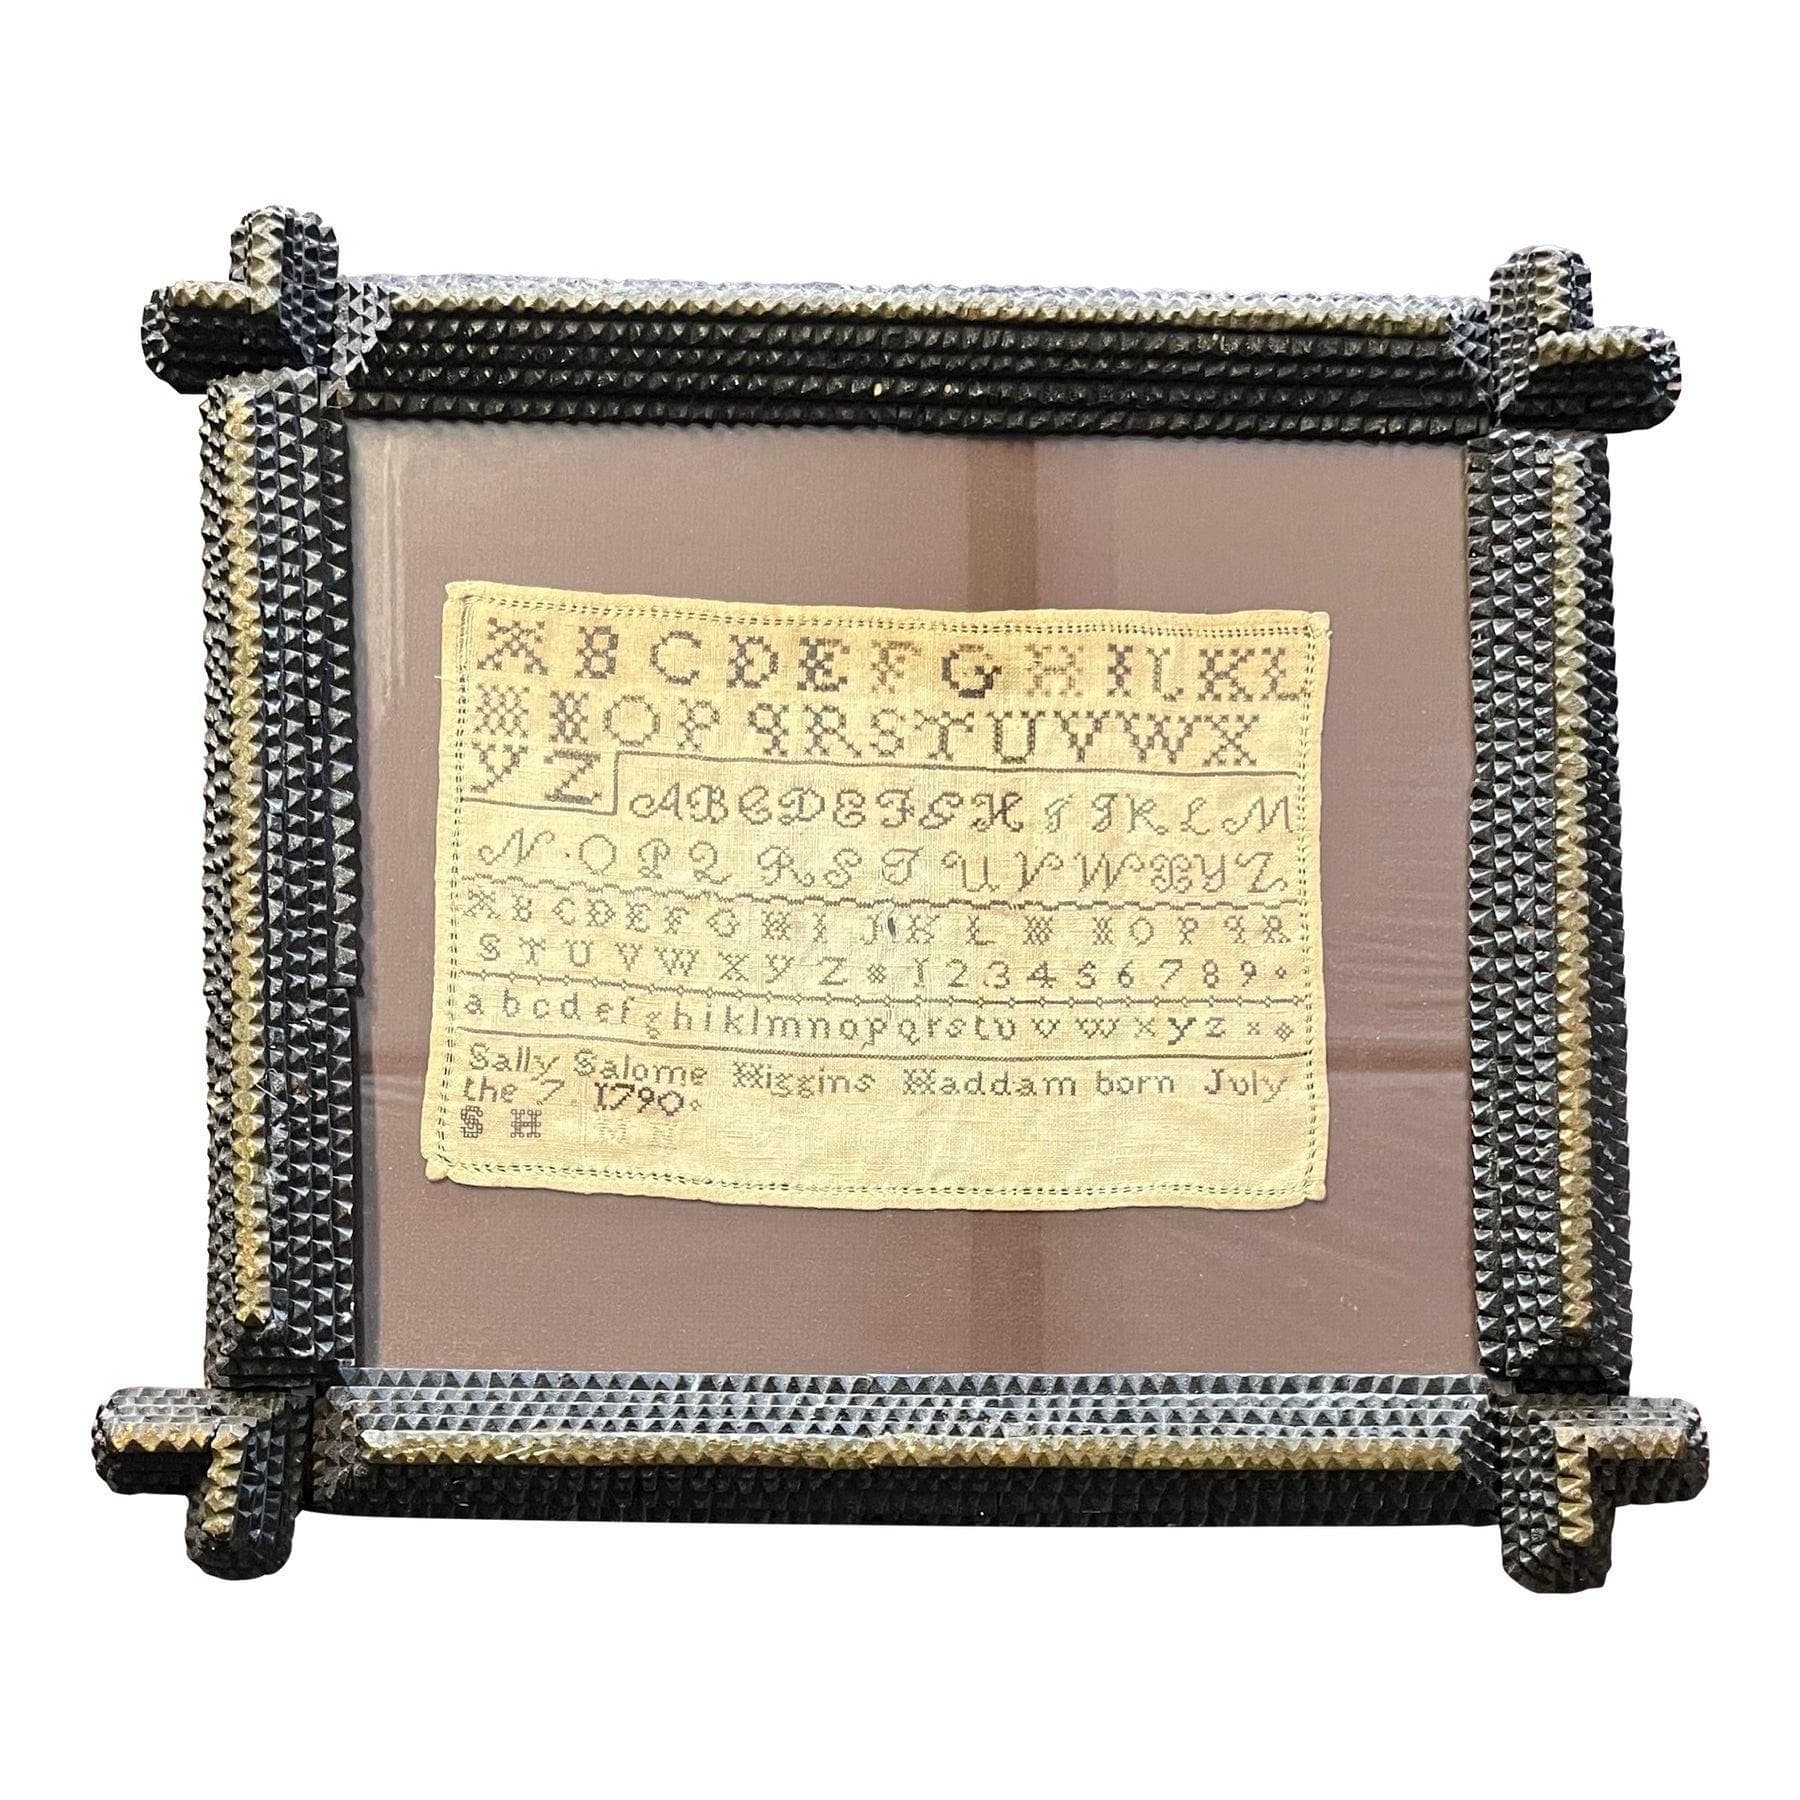 A B C D E F G H I J K L
M N O P Q R S T U V W X
Y Z
A B C D E F G H I J K L M
N O P Q R S T U V W X Y Z
A B C D E F G H I J K L M N O P Q R
S T U V W X Y Z 1 2 3 4 5 6 7 8 9
a b c d e f g h i k l m n o p q r s t u v w x y z
Sally Salome Higgins Haddam born July
the 7 1790
S H M N